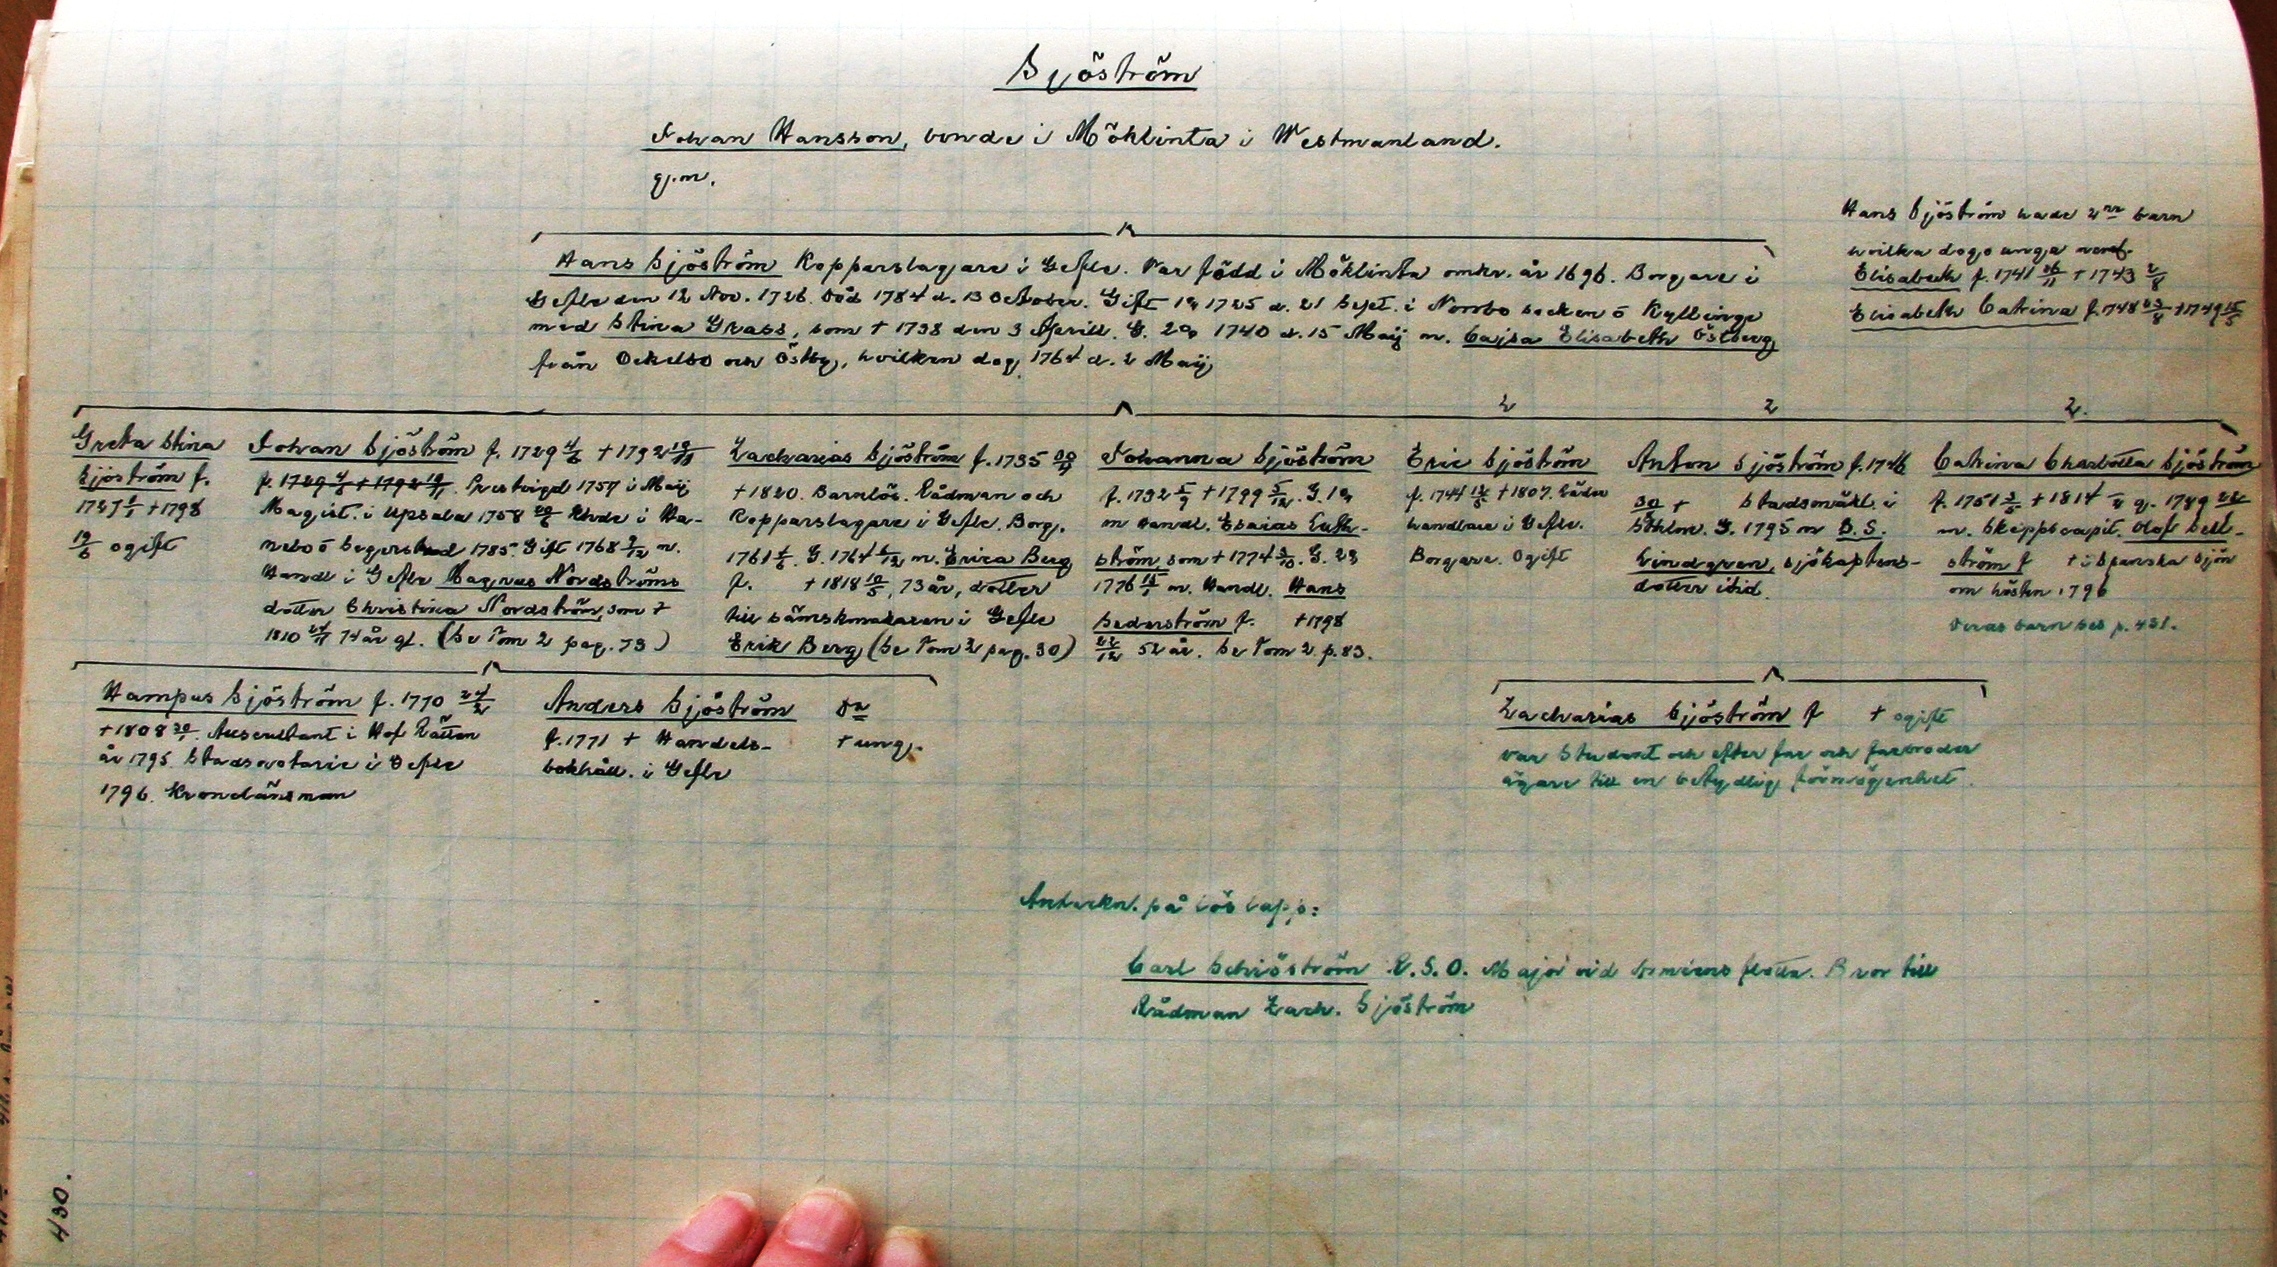 Sjöström
Johan Hansson, bonde i Möklinta i Westmanland.
gj.m.
Hans Sjöström hade 2ne barn
hvilka dogo unga
Elisabeth f. 1741 26/11 + 1743 2/8
Elisabeth Catrina f. 1748 23/8 + 1749 15/5
Hans Sjöström Kopparslagare i Gefle. Var född i Möklinta omkr. år 1696. Borgare i
Gefle den 12 Nov. 1726. Död 1784 d. 13 October. Gift 1a 1725 d. 21 Sept. i Norrbo socken ö Kyllinge
med Stina Grass, som + 1738 den 3 Aprill. G. 2a 1740 d. 15 Maij m. Cajsa Elisabeth Östberg
från Ockelbo och Östby, hvilken dog 1764 d. 2 Maij
2 2 2.
Greta Stina
Sjöström f.
1727 + 1798
19/6 ogift
Johan Sjöström f. 1729 4/6 + 1792 19/11
f. 1729 4/6 + 1792 19/11. Prestvigd 1757 i Maij
Magist. i Upsala 1758 Khde i Ha-
nebo ö Segerstad 1785. Gift 1768 9/12 m.
Handl i Gefle Magnus Nordströms
dotter Christina Nordström, som +
1810 24/11 74 år gl. (Se Tom 2 pag. 73)
Zacharias Sjöström f. 1735
+ 1820. Barnlös. Rådman och
Kopparslagare i Gefle. Borg.
1761 G. 1764 6/12 m. Erica Berg
f. + 1818 10/5, 73 år, dotter
till sämskmakaren i Gefle
Erik Berg (Se Tom 2 pag. 30)
Johanna Sjöström
f. 1732 5/9 + 1799 5/12. G. 1a
m Handl. Esaias Enh-
ström, som + 1774 G. 2a
1776 m. Handl. Hans
Sederström f. + 1798
22/12 52 år. Se Tom 2. p. 83.
Eric Sjöström
f. 1744 12/5 + 1807. Läder
handlare i Gefle.
Borgare. Ogift
Anton Sjöström f. 1746
+ Stadsmäkl. i
Sthlm. G. 1795 m B. S.
Lindgren, sjökaptens-
dotter ibid.
Catrina Charlotta Sjöström
f. 1751 3/6 + 1814 g. 1789
m. Skeppscapit. Olof Sell-
ström f + i Spanska Sjön
om hösten 1796
Deras barn ses p. 431.
Hampus Sjöström f. 1770 24/2
+ 1808. Auscultant i Hof Rätten
år 1795. Stadsnotarie i Gefle
1796. Kronolänsman
Anders Sjöström
f. 1771 + Handels-
bokhåll. i Gefle
Dn
+ ung.
Zacharias Sjöström f + ogift
var Student och efter far och farbroder
ägare till en betydlig förmögenhet.
Anteckn. på lös lapp:
Carl Schiöström R. S. O. Major vid Armeens flotta. Bror till
Rådman Zach. Sjöström
430.